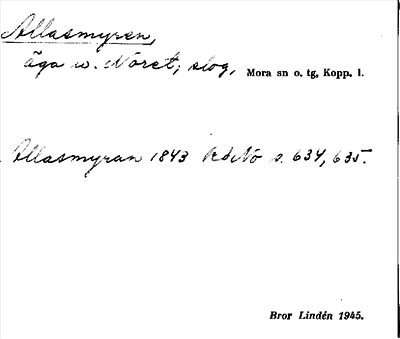 Allasmyren,
äga w. Noret; slog, Mora sn o. tg, Kopp. l.
Allasmyran 1843 s. 634, 635.
Bror Lindén 1945.